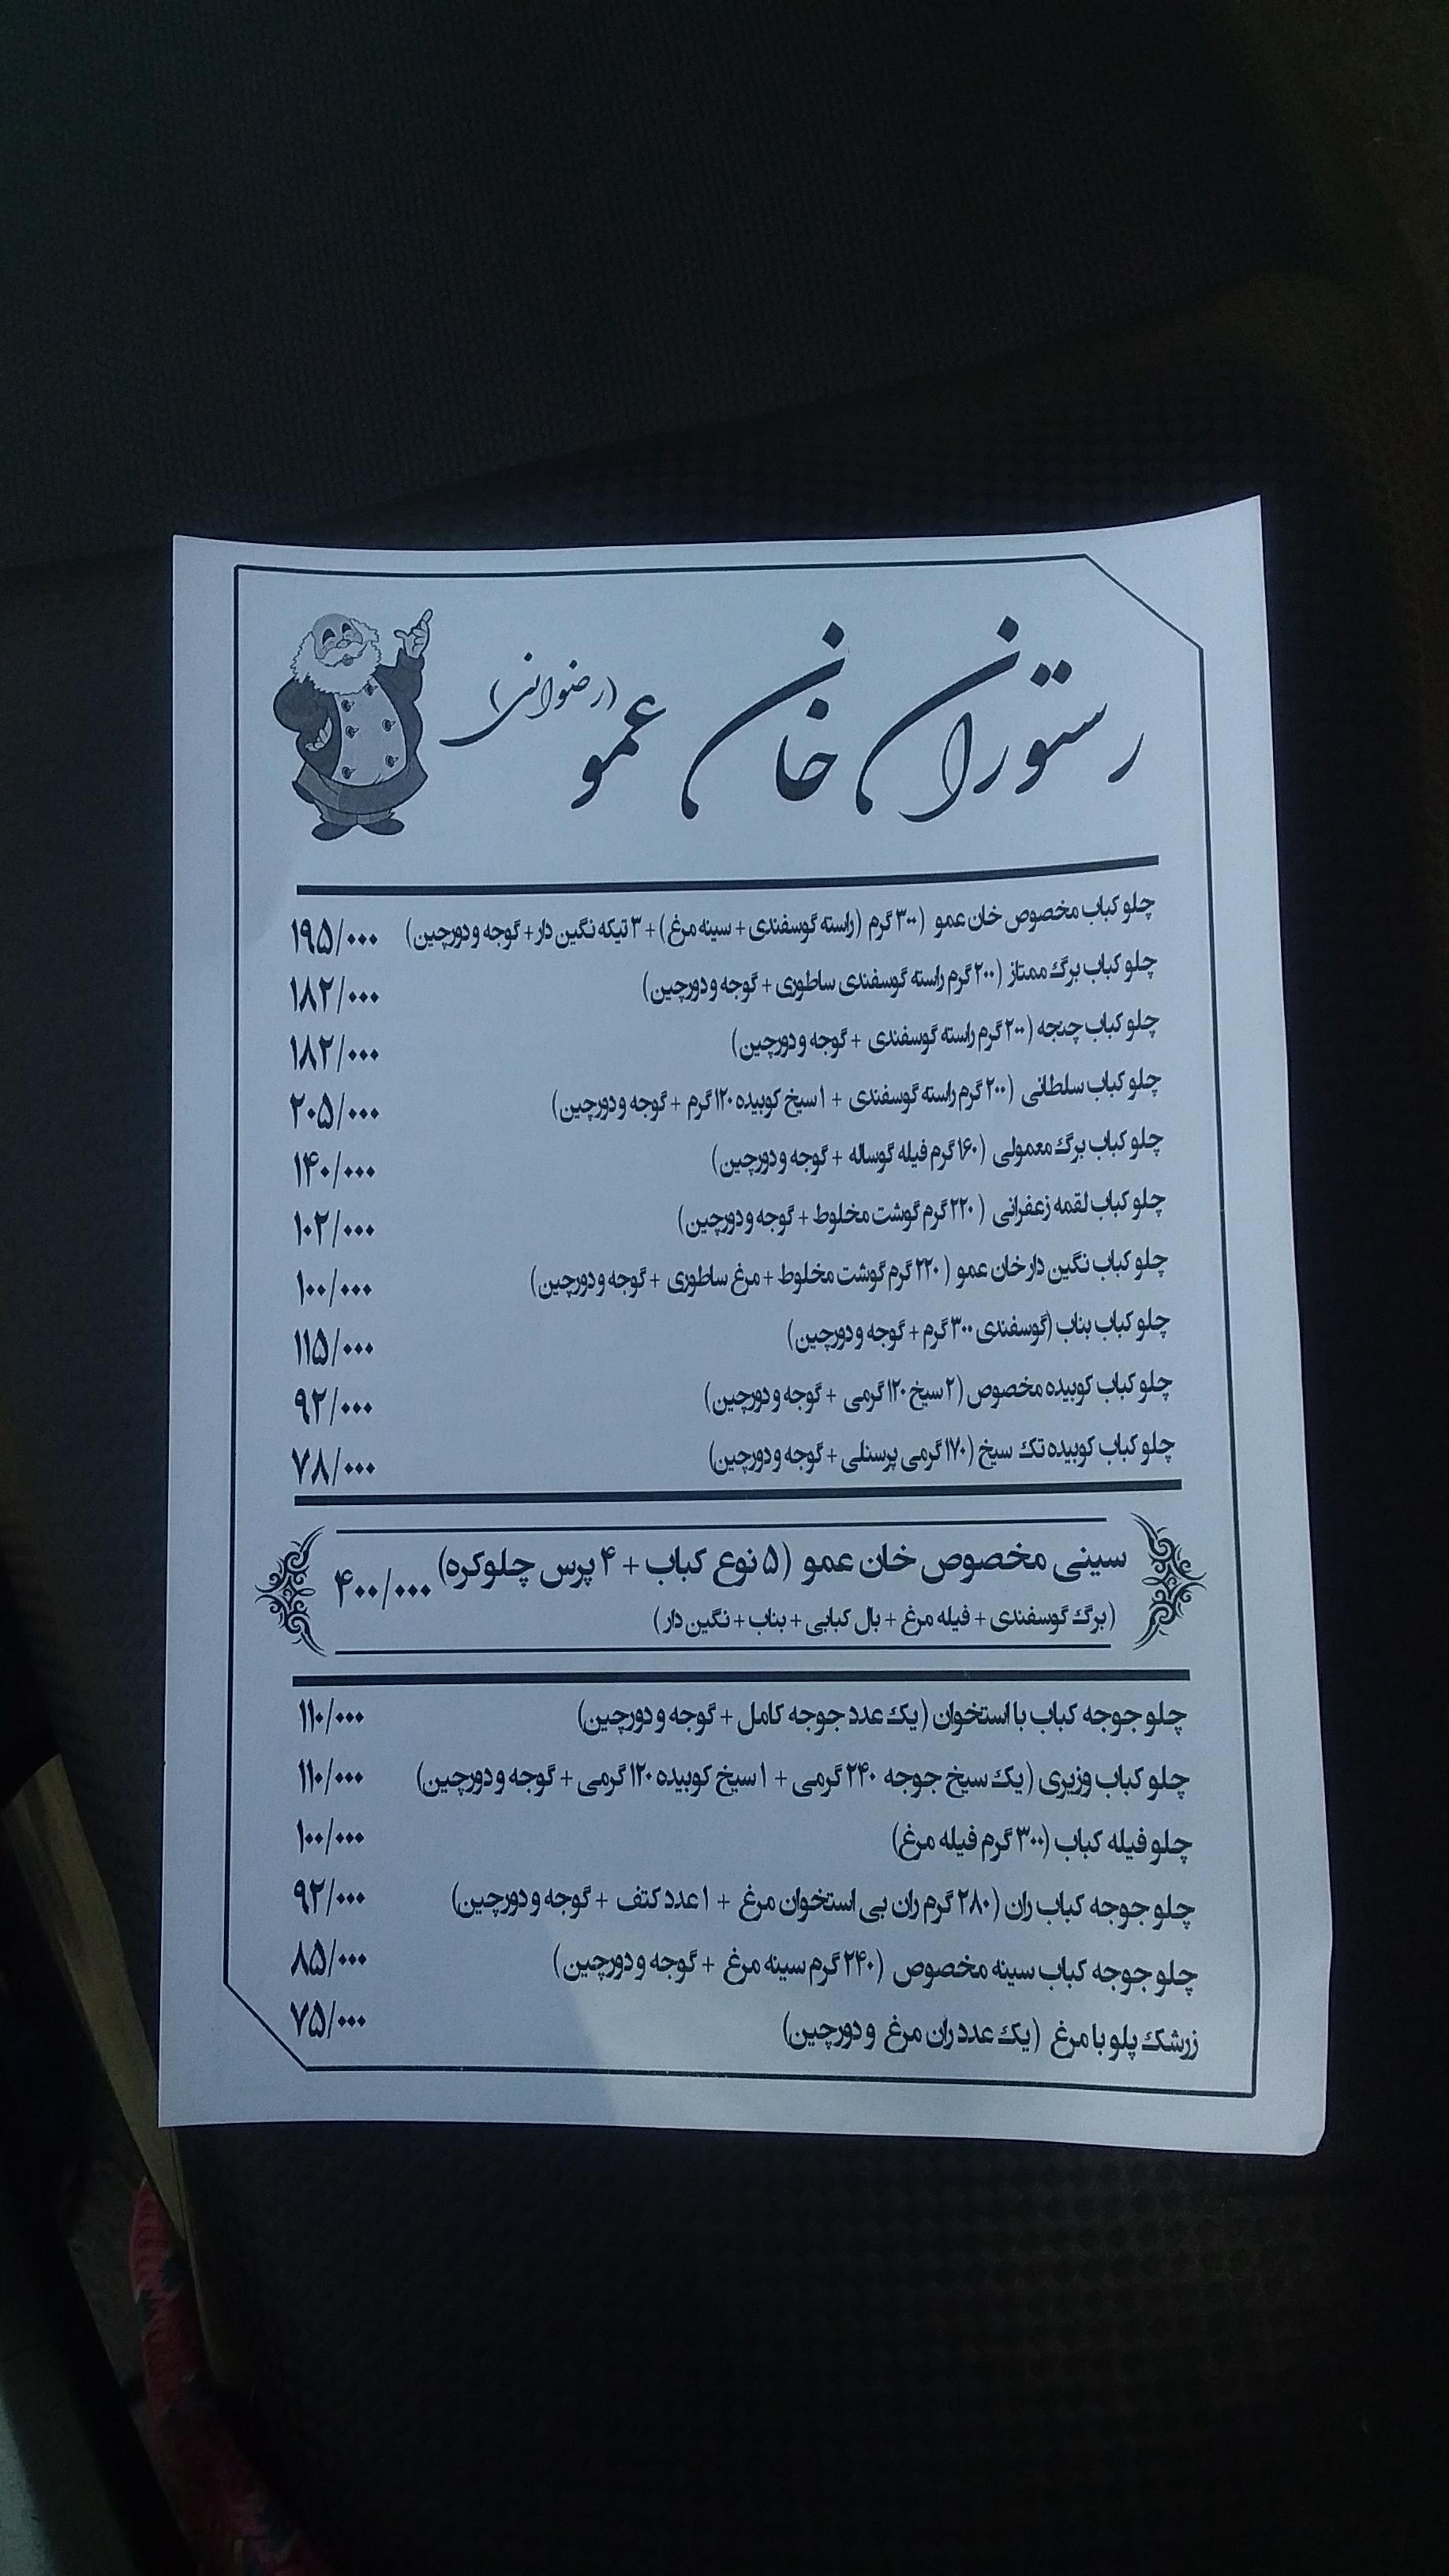 رستوران خان عمو (رضوانی)
چلو کباب مخصوص خان عمو (۳۰۰ گرم (راسته گوسفندی + سینه مرغ) + ۳ تیکه نگین دار + گوجه و دورچین) ۱۹۵/۰۰۰
چلو کباب برگ ممتاز (۲۰۰ گرم راسته گوسفندی ساطوری + گوجه و دورچین) ۱۸۲/۰۰۰
چلو کباب چنجه (۲۰۰ گرم راسته گوسفندی + گوجه و دورچین) ۱۸۲/۰۰۰
چلو کباب سلطانی (۲۰۰ گرم راسته گوسفندی + ۱ سیخ کوبیده ۱۲۰ گرم + گوجه و دورچین) ۲۰۵/۰۰۰
چلو کباب برگ معمولی (۱۶۰ گرم فیله گوساله + گوجه و دورچین) ۱۴۰/۰۰۰
چلو کباب لقمه زعفرانی (۲۲۰ گرم گوشت مخلوط + گوجه و دورچین) ۱۰۲/۰۰۰
چلو کباب نگین دار خان عمو (۲۲۰ گرم گوشت مخلوط + مرغ ساطوری + گوجه و دورچین) ۱۰۰/۰۰۰
چلو کباب بناب (گوسفندی ۳۰۰ گرم + گوجه و دورچین) ۱۱۵/۰۰۰
چلو کباب کوبیده مخصوص (۲ سیخ ۱۲۰ گرمی + گوجه و دورچین) ۹۲/۰۰۰
چلو کباب کوبیده تک سیخ (۱۷۰ گرمی پرسنلی + گوجه و دورچین) ۷۸/۰۰۰
سینی مخصوص خان عمو (۵ نوع کباب + ۴ پرس چلوکره) ۴۰۰/۰۰۰
(برگ گوسفندی + فیله مرغ + بال کبابی + بناب + نگین دار)
چلو جوجه کباب با استخوان (یک عدد جوجه کامل + گوجه و دورچین) ۱۱۰/۰۰۰
چلو کباب وزیری (یک سیخ جوجه ۲۴۰ گرمی + ۱ سیخ کوبیده ۱۲۰ گرمی + گوجه و دورچین) ۱۱۰/۰۰۰
چلو فیله کباب (۳۰۰ گرم فیله مرغ) ۱۰۰/۰۰۰
چلو جوجه کباب ران (۲۸۰ گرم ران بی استخوان مرغ + ۱ عدد کتف + گوجه و دورچین) ۹۲/۰۰۰
چلو جوجه کباب سینه مخصوص (۲۴۰ گرم سینه مرغ + گوجه و دورچین) ۸۵/۰۰۰
زرشک پلو با مرغ (یک عدد ران مرغ و دورچین) ۷۵/۰۰۰